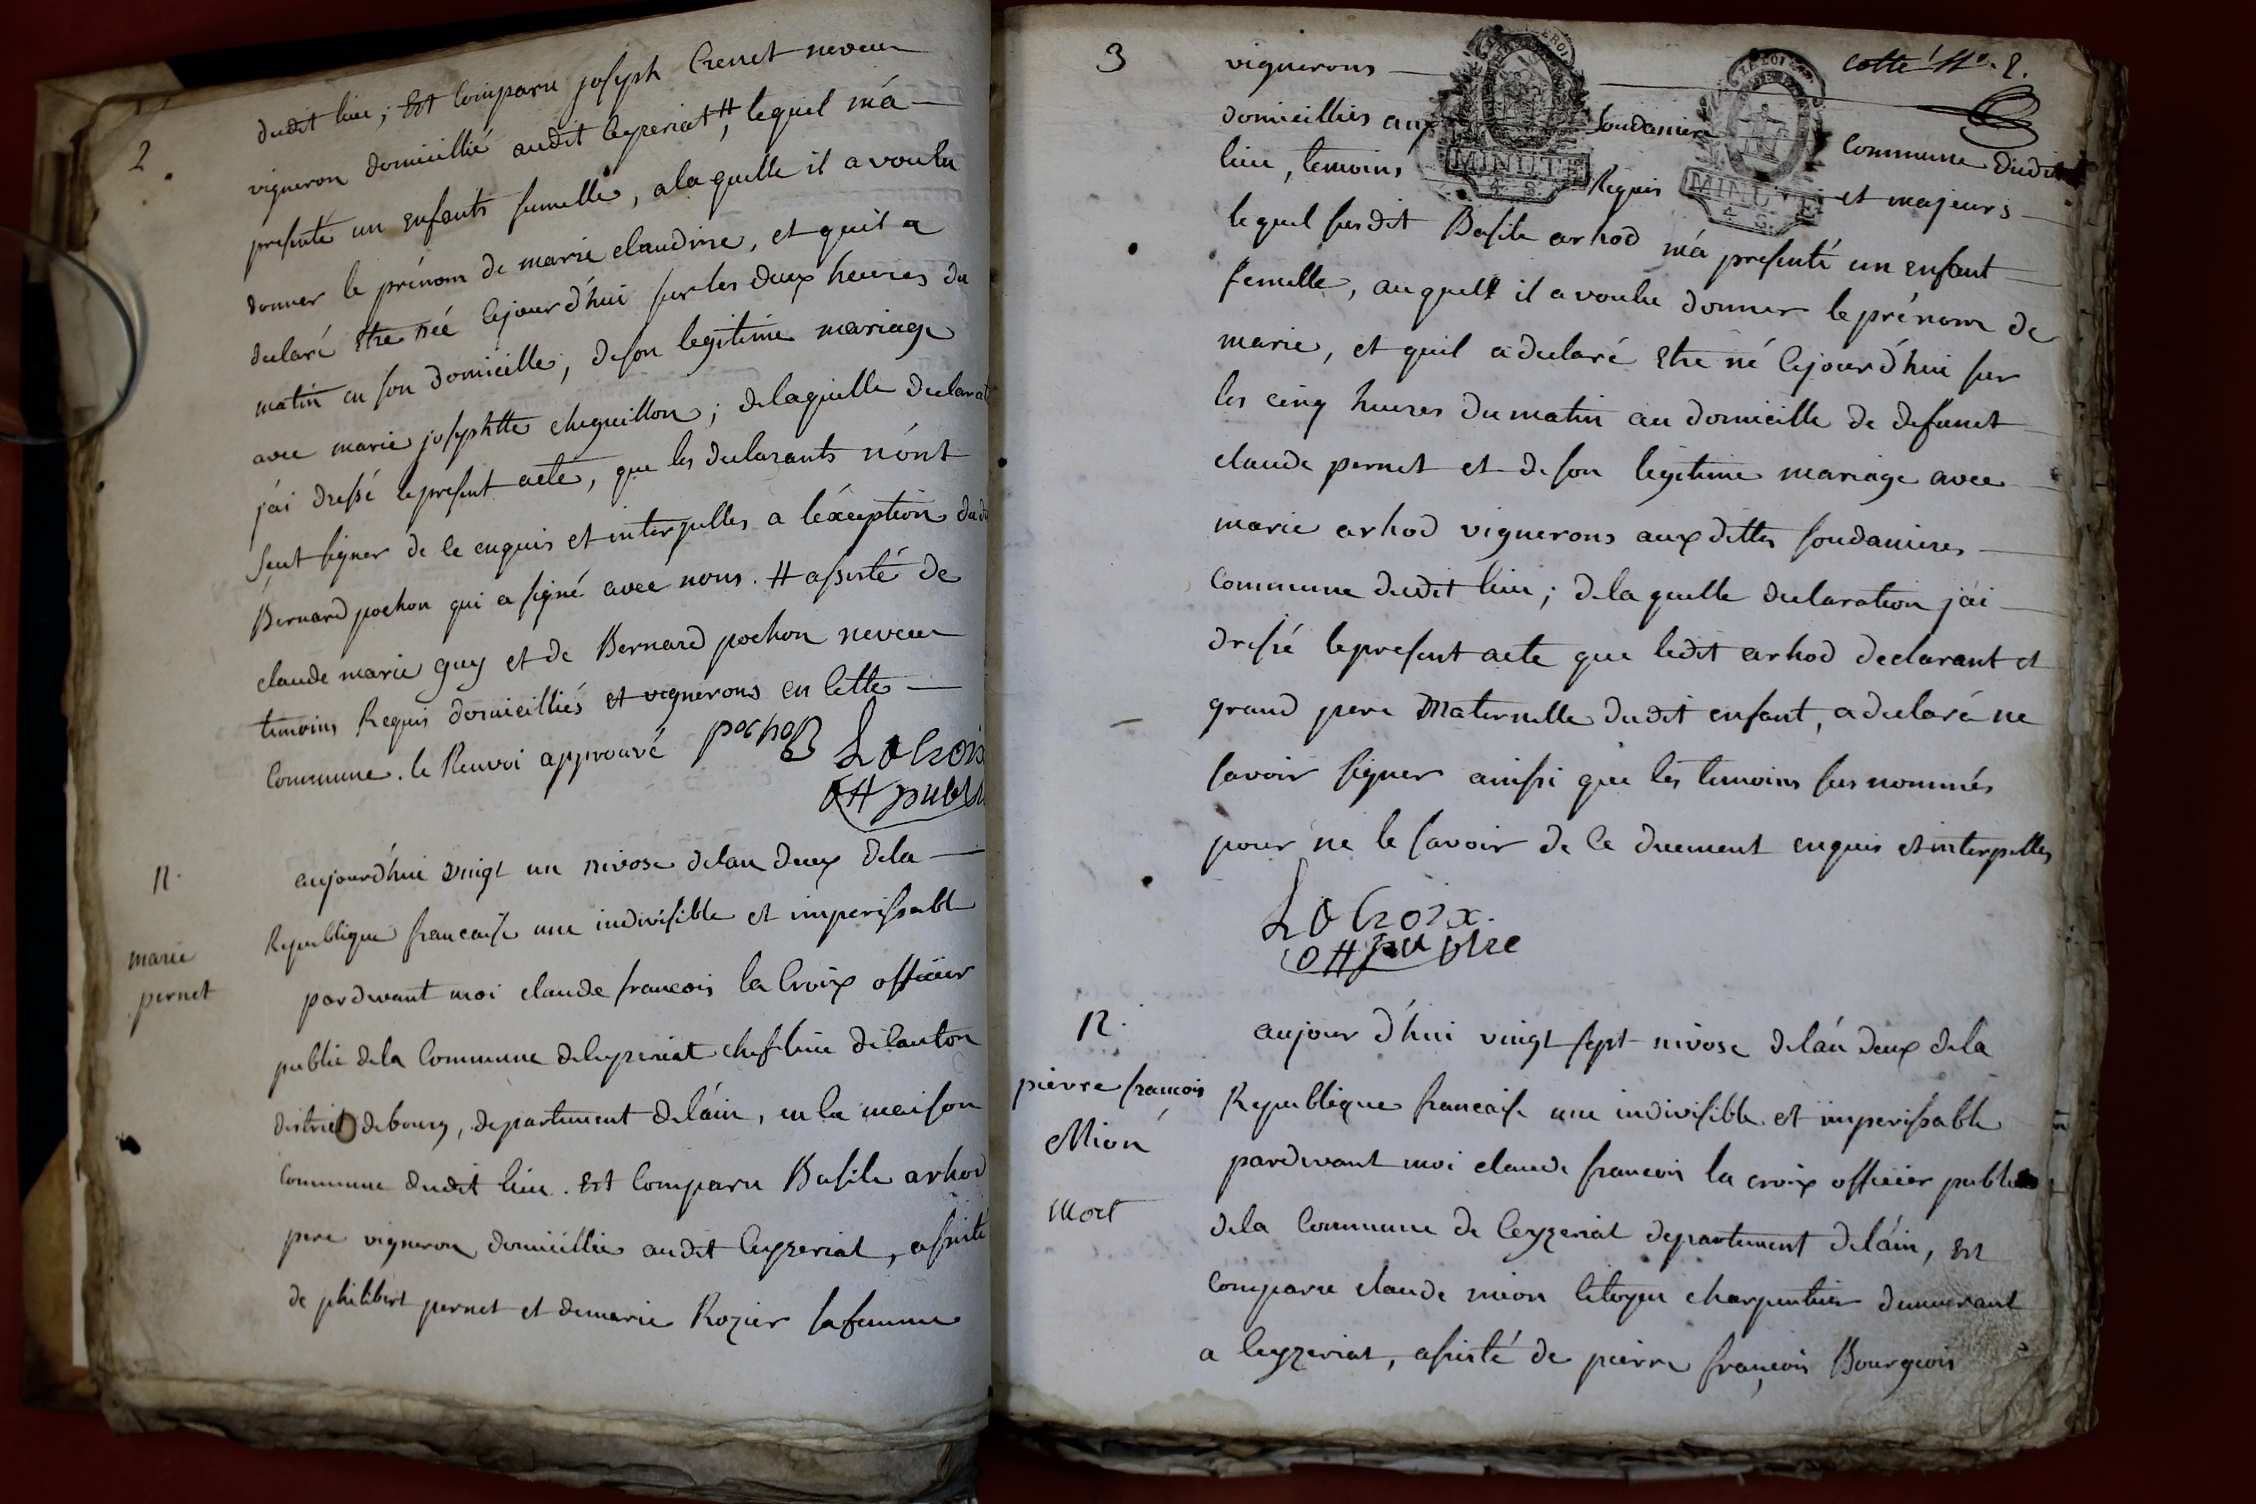 2
dudit lieu; Est Comparu joseph Crerret neveu
vigneron domicillié audit Ceyzeriat #, lequel m'a
presenté un enfants femelle, a laquelle il a voulu
donner le prénom de marie claudine, et quil a
declaré Etre née Cejourd'hui sur les deux heures du
matin en son domicille, de son legitime mariage
avec marie josephtte cheguillon; de laquelle declarat
j'ai dressé le present acte, que les declarants n'ont
seut signer de ce enquis et interpelles a l'éxception dud
Bernard pochon qui a signé avec nous. # assisté de
claude marie guy et de Bernard pochon neveu
temoins Requis domicilliés et vignerons en Cette
Commune. le Renvoi approuvé pochoB LaCroix
off publi
n.
marie
pernet
aujourd'hui vingt un nivose delan deux dela
Republique francaise une indivisible et imperissable
pardevant moi claude francois la Croix officier
public dela Commune deleyzeriat chef lieu de Canton
district debourg, departement delain, en la maison
Commune dudit lieu. Est Comparu Basile arhod
pere vigneron domicillié audit Ceyzeriat, assisté
de philibert pernet et demarie Rozier sa femme
3
cotté No. 2.
vignerons
domicilliés aux Soudanieres Commune dudit
lieu, temoins Requis et majeurs
MINUTE
4 S.
MINUTE
4 S.
lequel susdit Basile arhod m'a presenté un enfant
femelle, auquell il a voulu donner le prénom de
marie, et quil a declaré Etre né Cejourd'hui sur
les cinq heures du matin au domicille de defunct
claude pernet et de son legitime mariage avec
marie arhod vignerons aux dittes soudanieres
Commune dudit lieu; de laquelle declaration j'ai
dressé lepresent acte que ledit arhod declarant et
grand pere Maternelle dudit enfant, a declaré ne
savoir signer ainsi que les temoins sus nommés
pour ne le savoir de ce duement enquis et interpelles
LaCroix.
off publice
n.
pierre francois
Mion
mort
aujour d'hui vingt sept nivose delán deux dela
Republique francaise une indivisible et imperissable
pardevant moi claude francois la croix officier public
dela Commune de Ceyzeriat departement deláin, Est
Comparu claude mion Citoyen charpentier demeurant
a Ceyzeriat, assisté de pierre françois Bourgeois